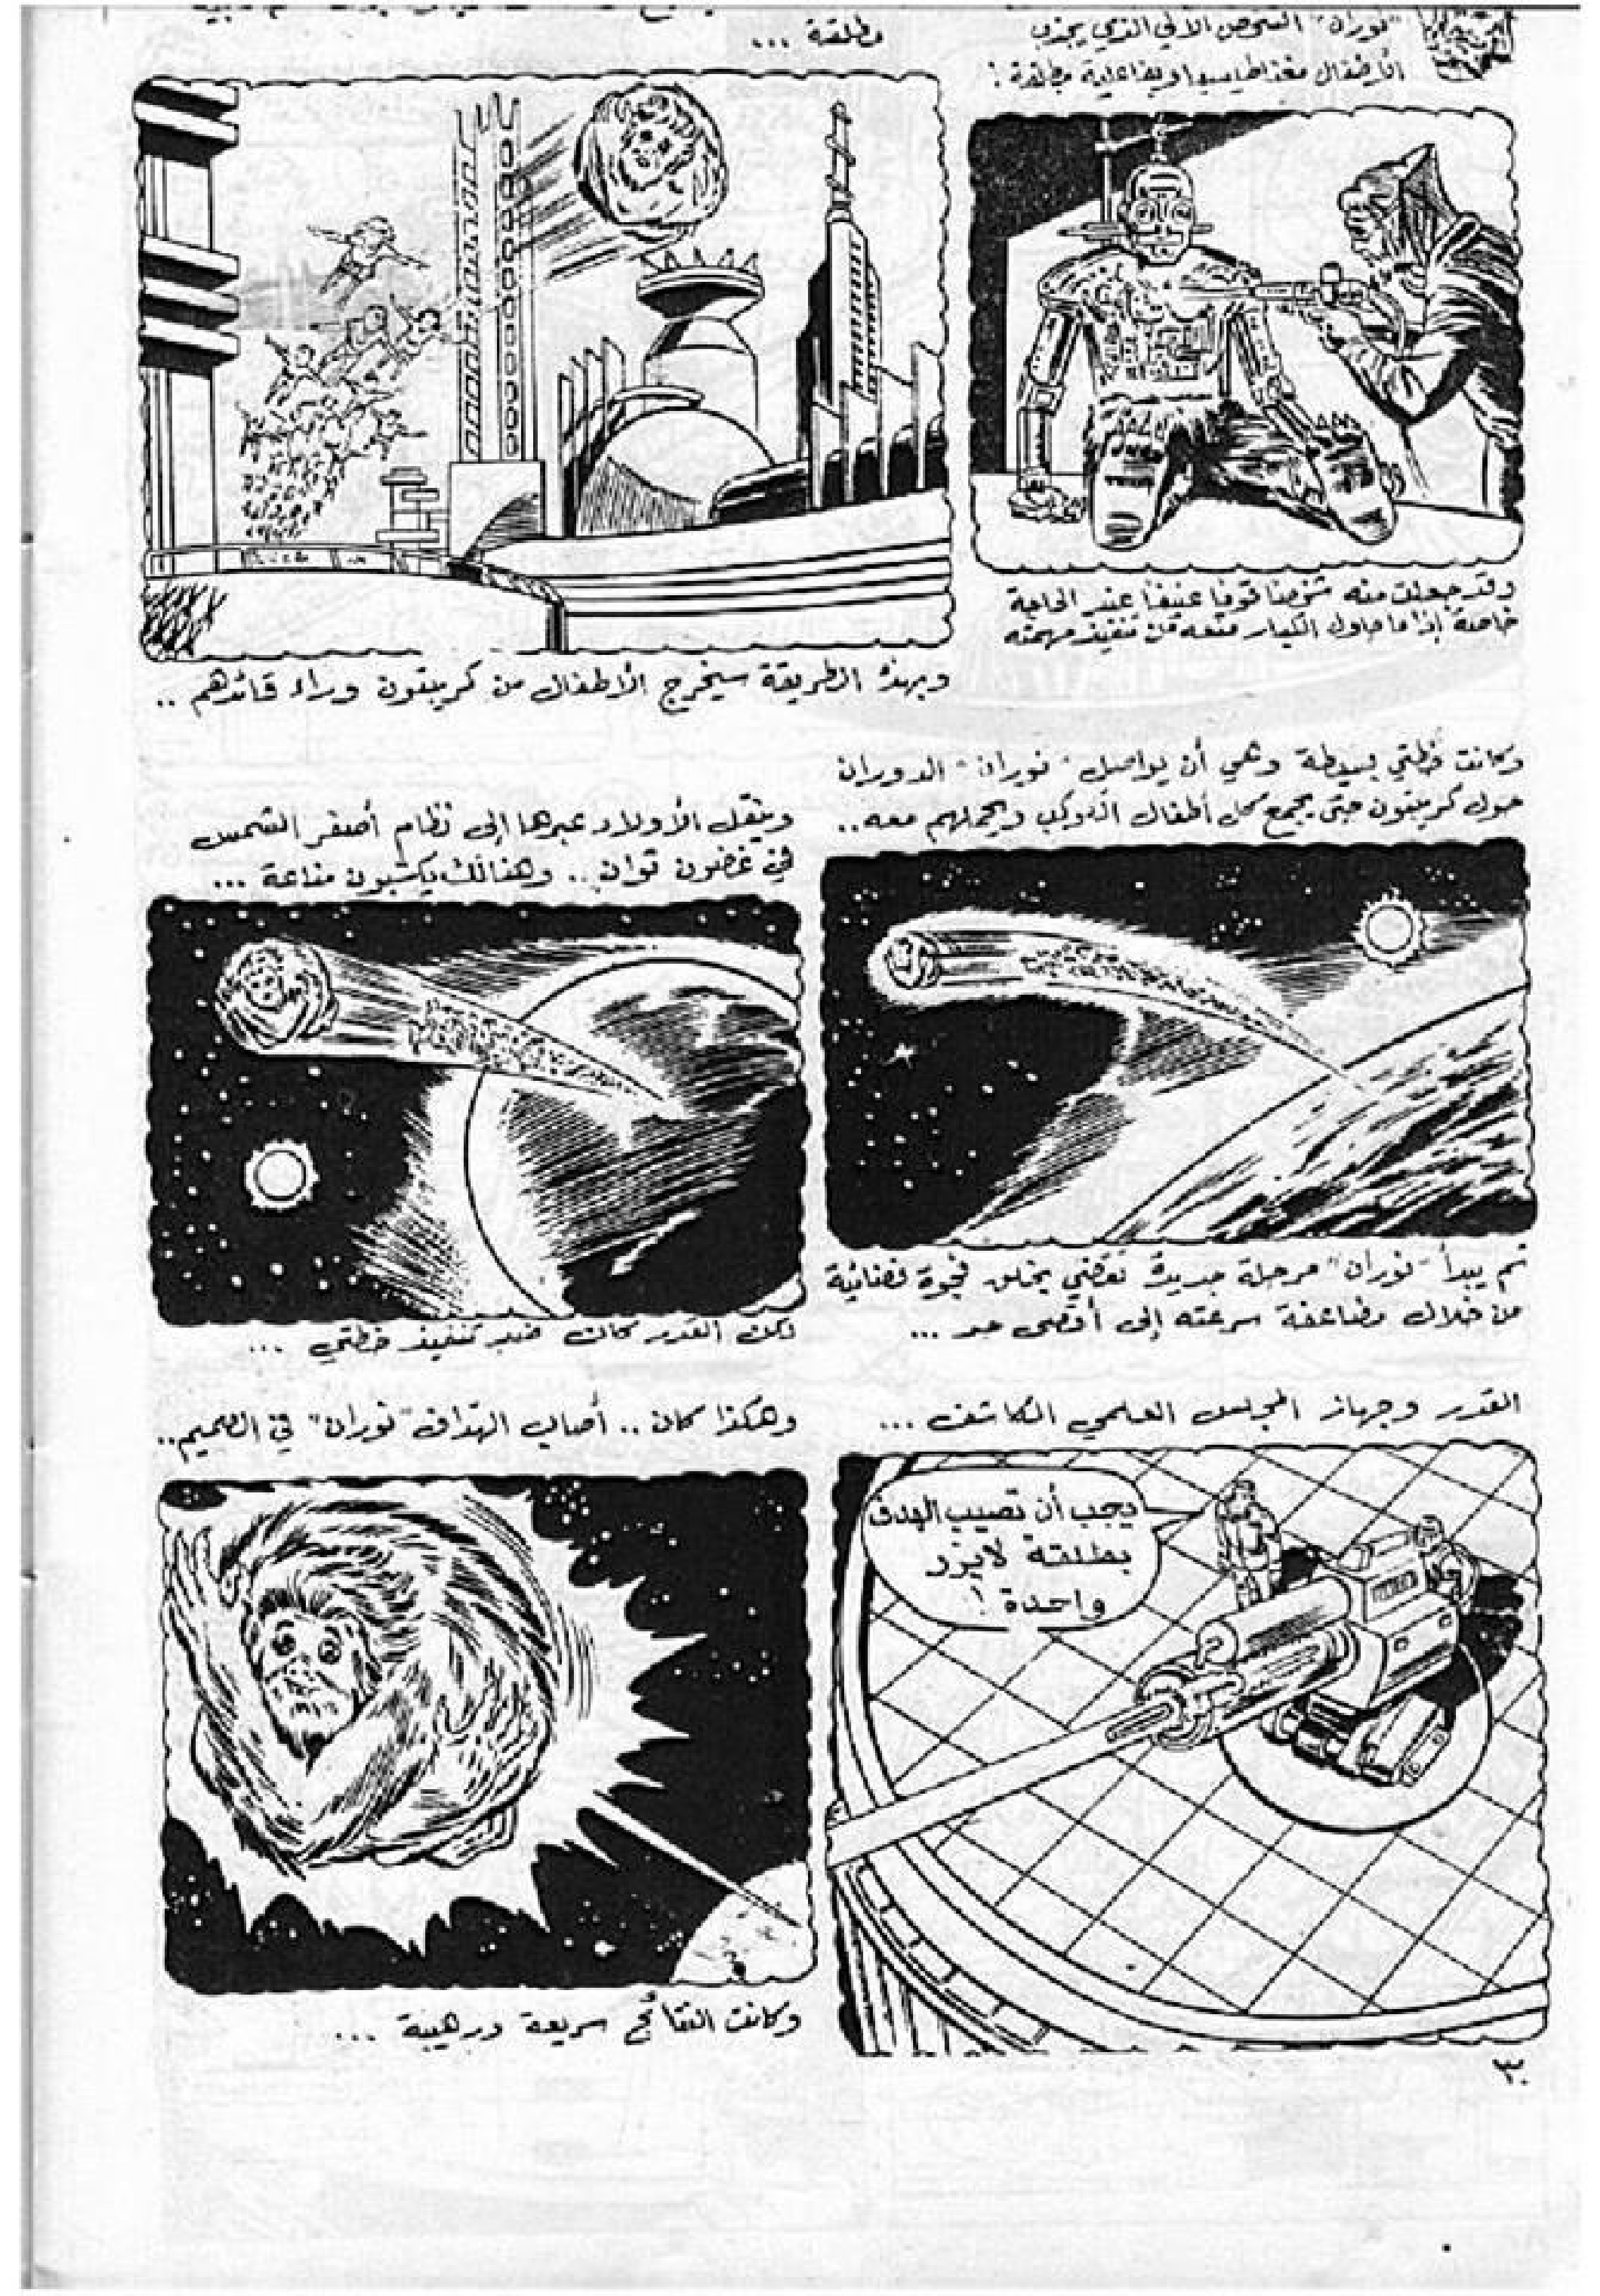 "نوران" الشخص الآلي الذي يجذب
الأطفال مغناطيسيا وبفاعلية مطلقة !
مطلقة ...
وقد جعلت منه شخصا قويا عنيفا عند الحاجة
خاصة إذا ما حاول الكبار منعه من تنفيذ مهمته
وبهذه الطريقة سيخرج الأطفال من كريبتون وراء قائدهم ..
وكانت خطتي بسيطة وهي أن يواصل "نوران" الدوران
حول كريبتون حتى يجمع كل أطفال الكوكب ويحملهم معه..
ثم يبدأ "نوران" مرحلة جديدة تقضي بخلق فجوة فضائية
من خلال مضاعفة سرعته إلى أقصى حد ...
وينقل الأولاد عبرها إلى نظام أصفر الشمس
في غضون ثوان .. وهنالك يكتسبون مناعة ...
لكن القدر كان ضد تنفيذ خطتي ...
القدر وجهاز المجلس العلمي الكاشف ...
يجب أن تصيب الهدف
بطلقة لايزر
واحدة !
وهكذا كان .. أصاب الهداف "نوران" في الصميم..
وكانت النتائج سريعة ورهيبة ...
٣٠